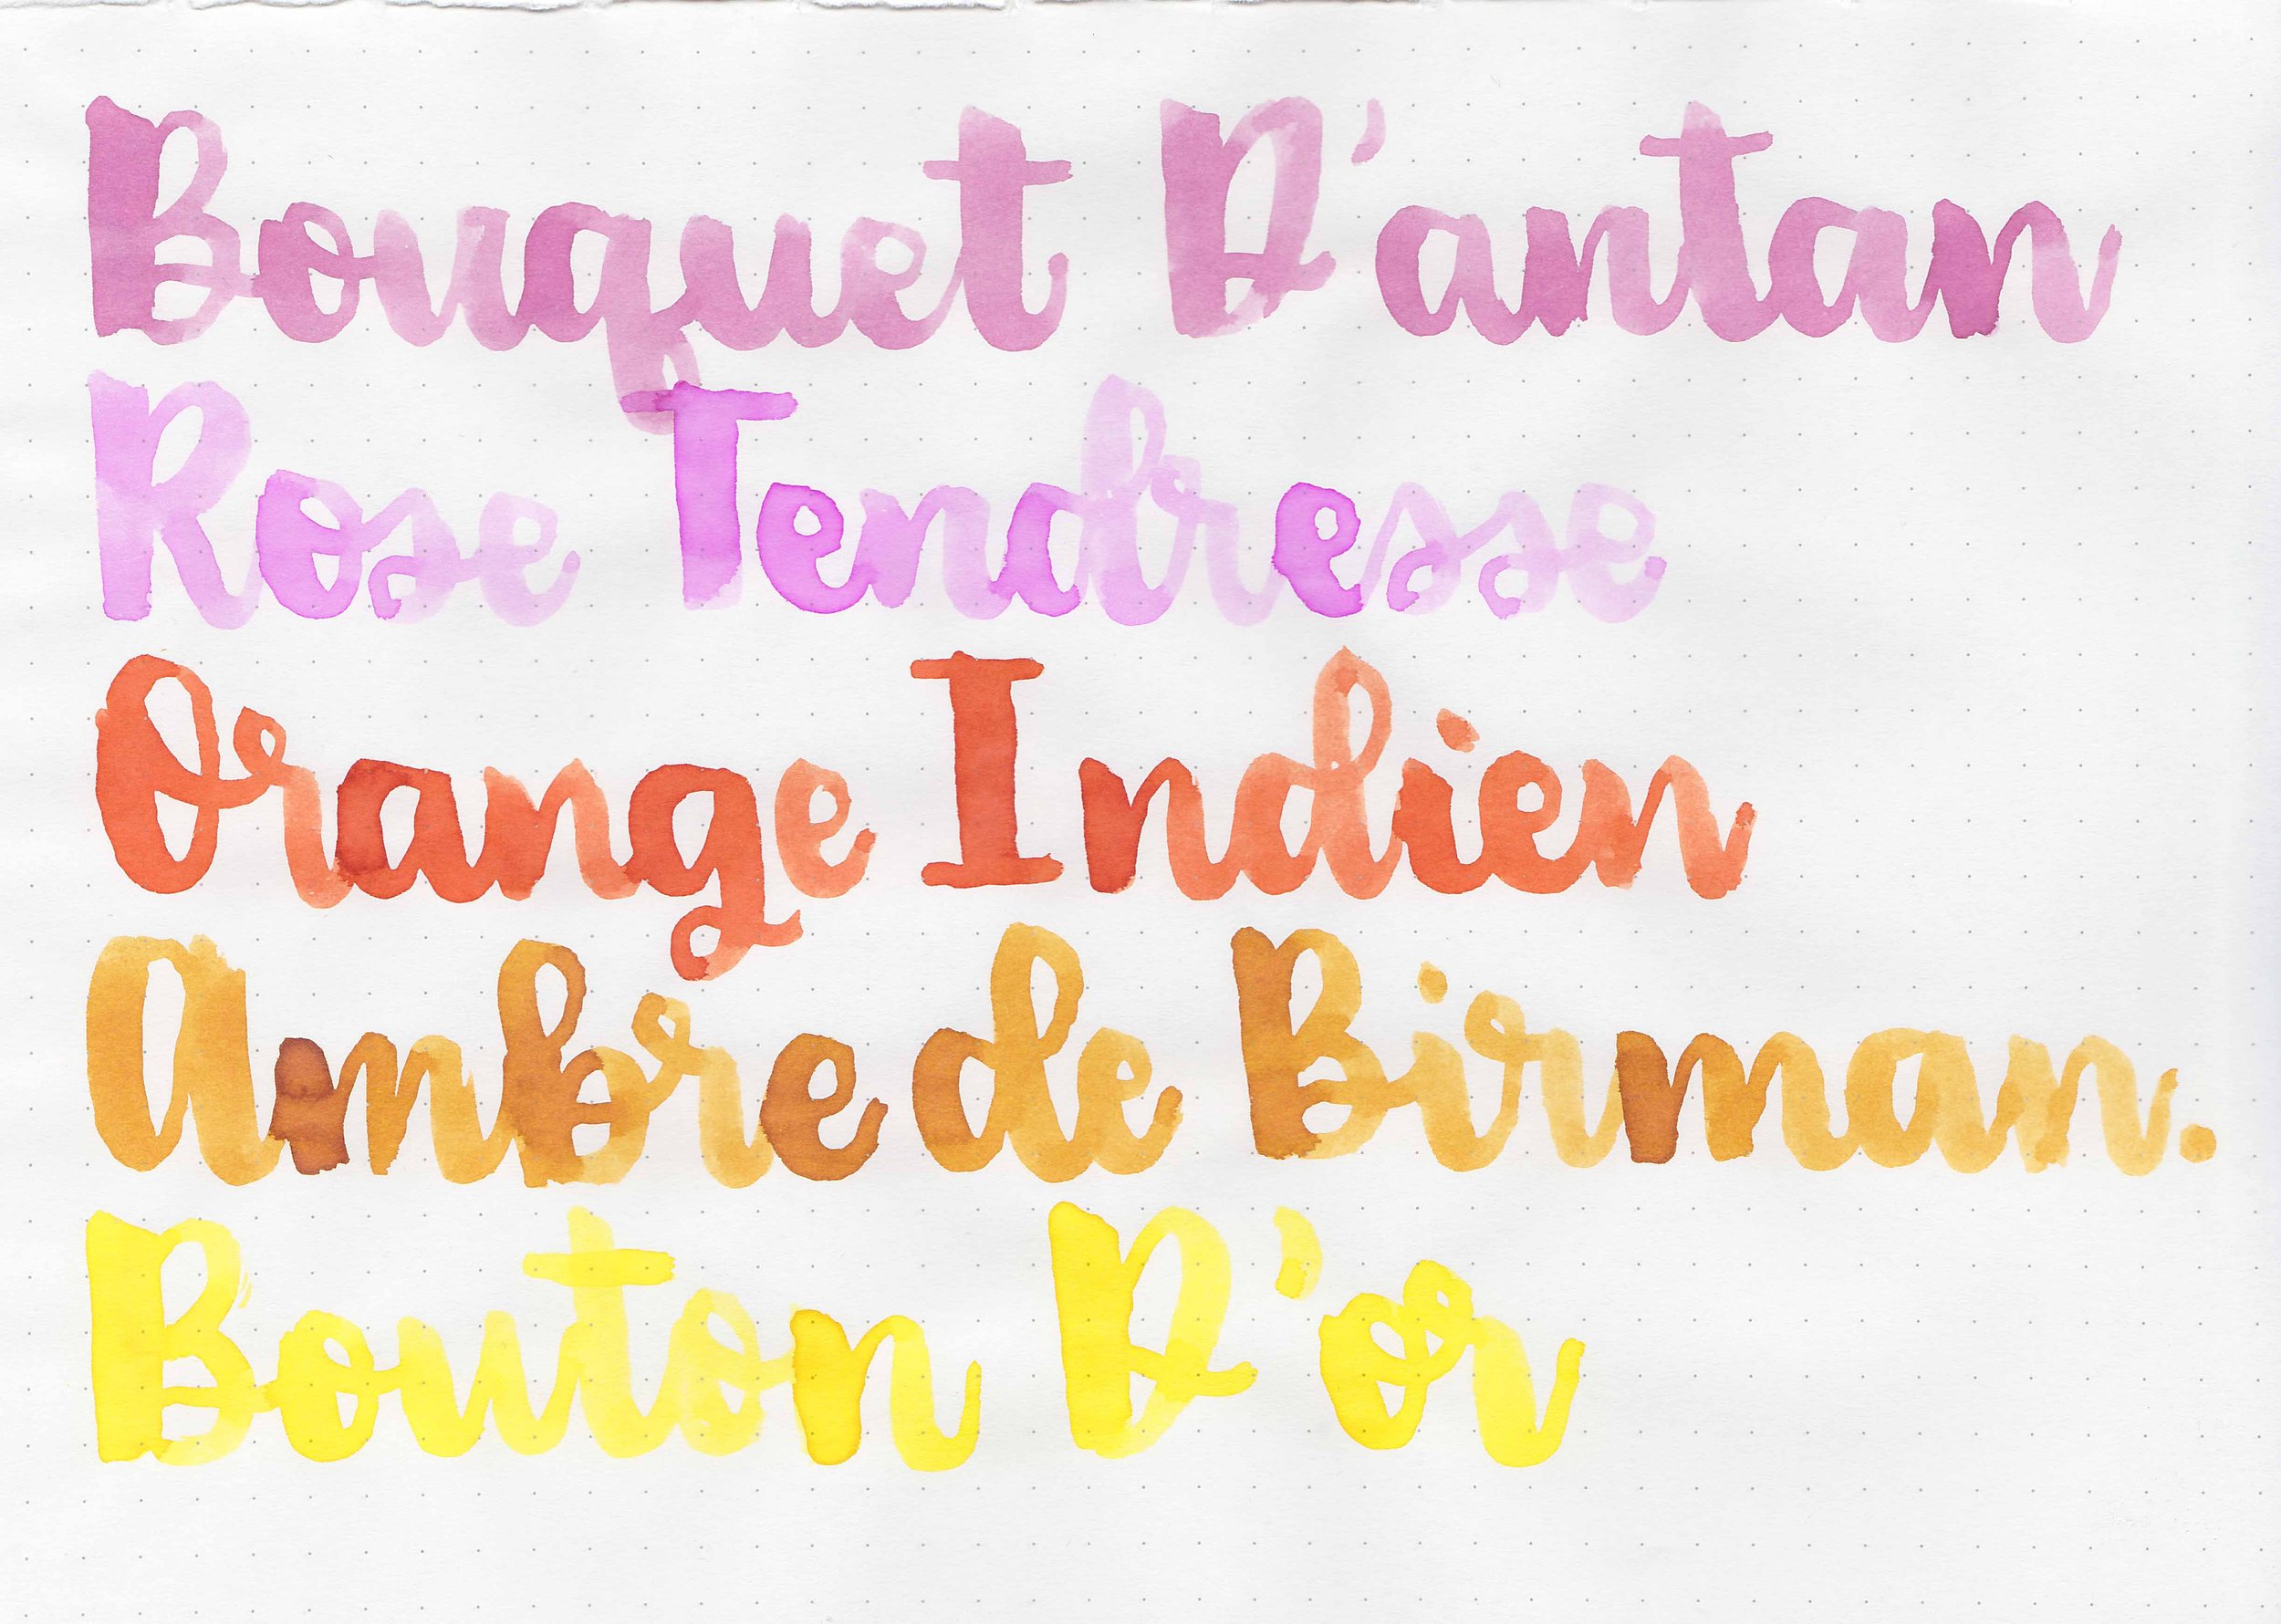 Bouquet D'antan
Rose Tendresse
Orange Indien
Ambre de Birman.
Bouton D'or